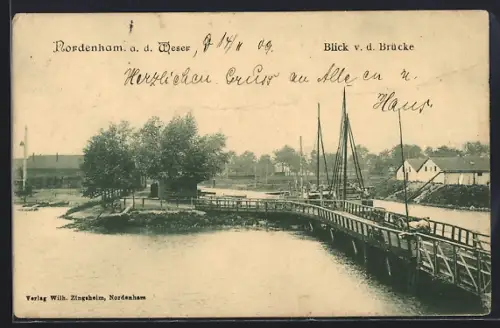 Nordenham. a. d. Weser, 14/11 09
Blick v. d. Brücke
Herzlichen Gruss an Alle en u.
Haus
Verlag Wilh. Zingsheim, Nordenham